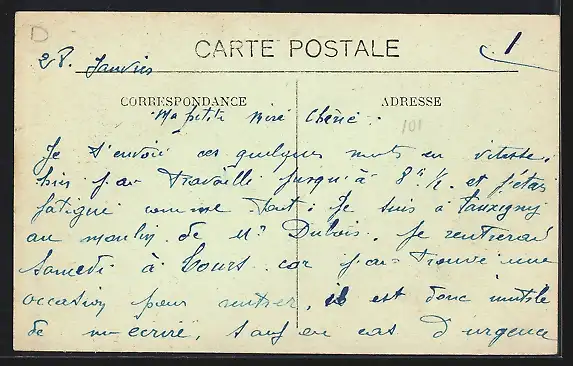 D
28. Janvier
CARTE POSTALE
1
CORRESPONDANCE
ADRESSE
101
Ma petite Miré Chérie.
Je t'envoie ces quelques mots en vitesse.
hier j'ai travaillé jusqu'à 8h 1/2 et j'étais
fatigué comme tout. Je suis à
au moulin de Mr Dubois. Je rentrerai
Samedi à Tours car j'ai trouvé une
occasion pour rentrer, il est donc inutile
de m'écrire, sauf en cas d'urgence